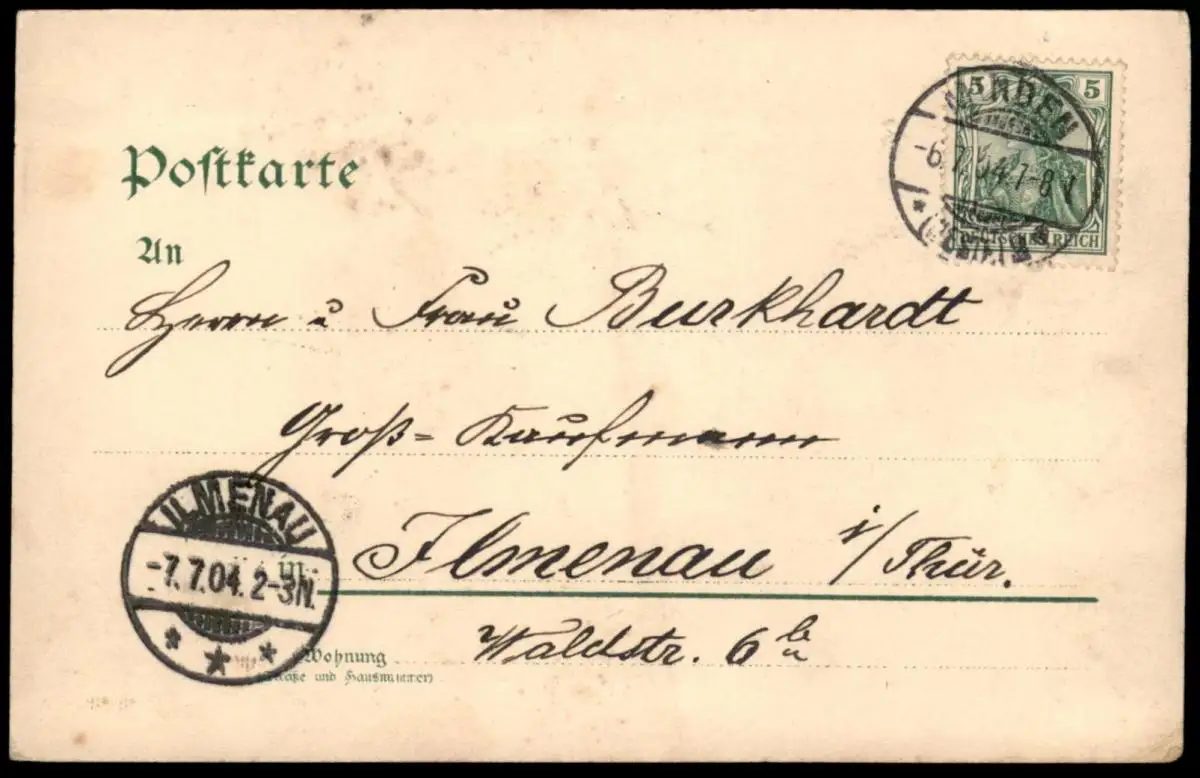 Postkarte
5 5
DEUTSCHES REICH
-6.7.04.7-8
An
Herrn u Frau Burkhardt
Groß-Kaufmann
Ilmenau i/Thür.
ILMENAU
-7.7.04. 2-3N.
Waldstr. 6
Wohnung
(Straße und Hausnummer)